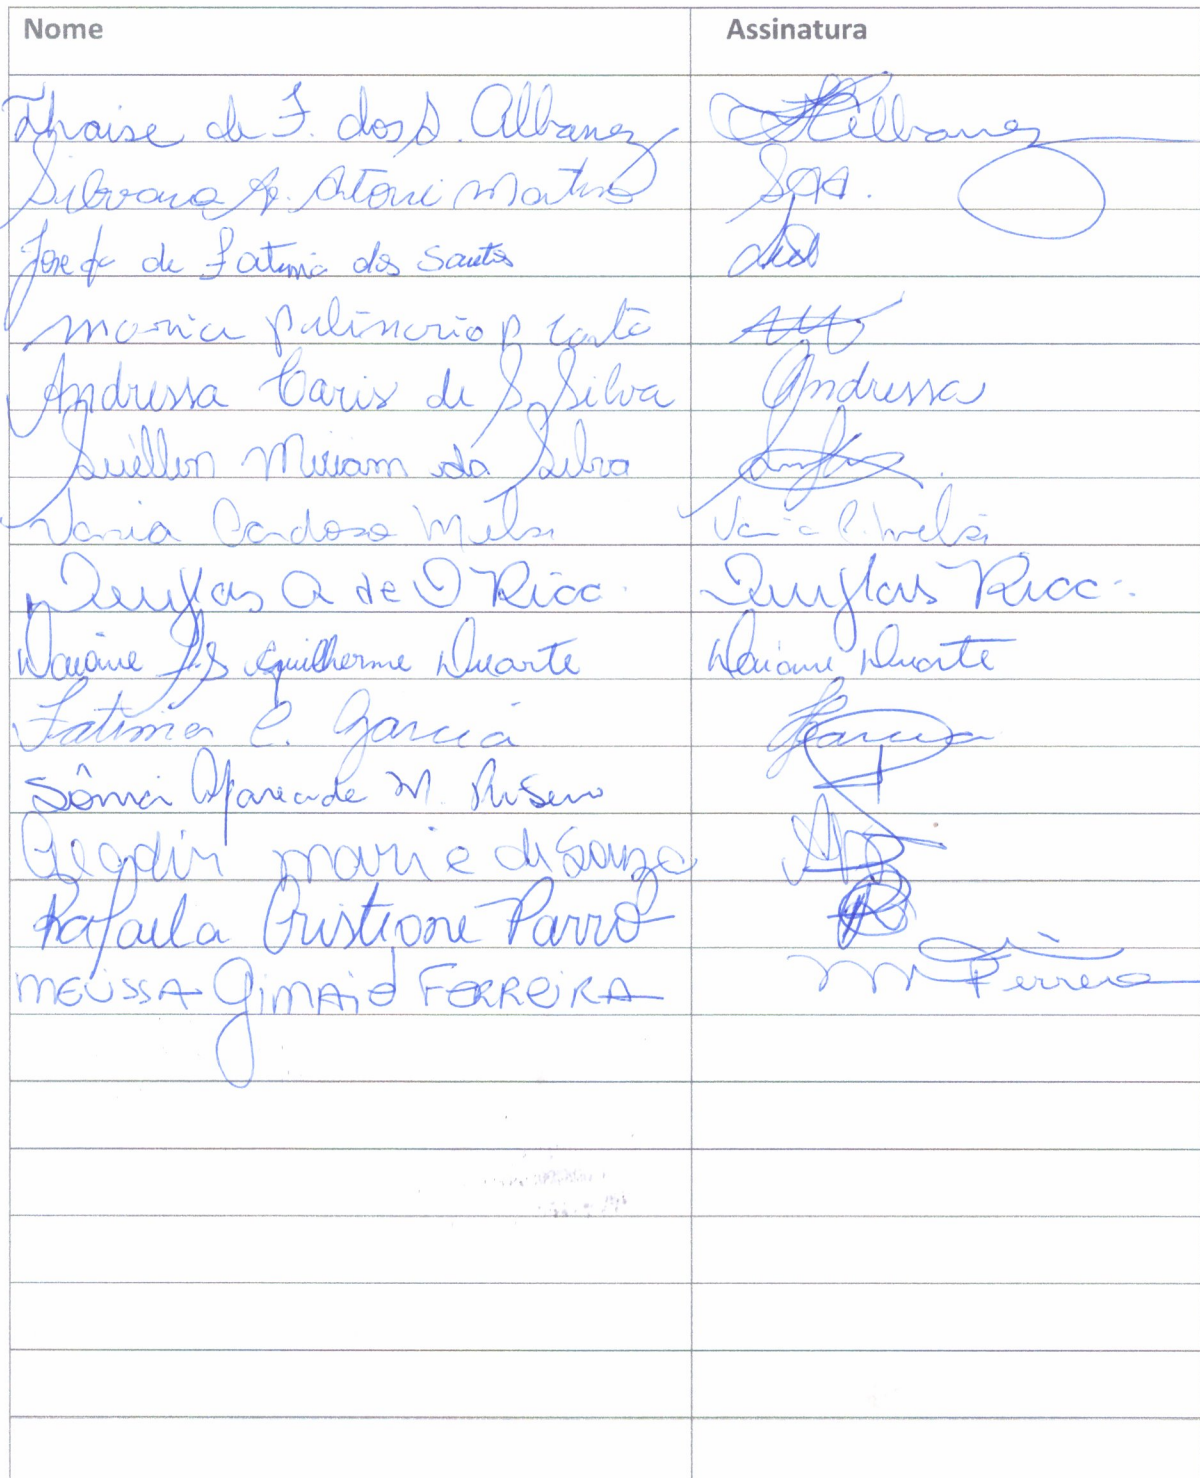 Nome Assinatura
Thaise de F. dos S. Albanez Albanez
Silvana Ap. Antoni Martins SAA.
Josefa de Fatima dos Santos
Maria p. Costa
Andressa Caris de S. Silva Andressa
Suéllen Miriam da Silva
Vania Cardoso Melo Vania C. Melo
Douglas A de O Ricc. Douglas Ricc.
Daiane Guilherme Duarte Daiane Duarte
Fatima C. Garcia Garcia
Sônia Aparecida M.
maria de Souza
Rafaela Cristiane Parro
MELISSA FERREIRA M Ferreira